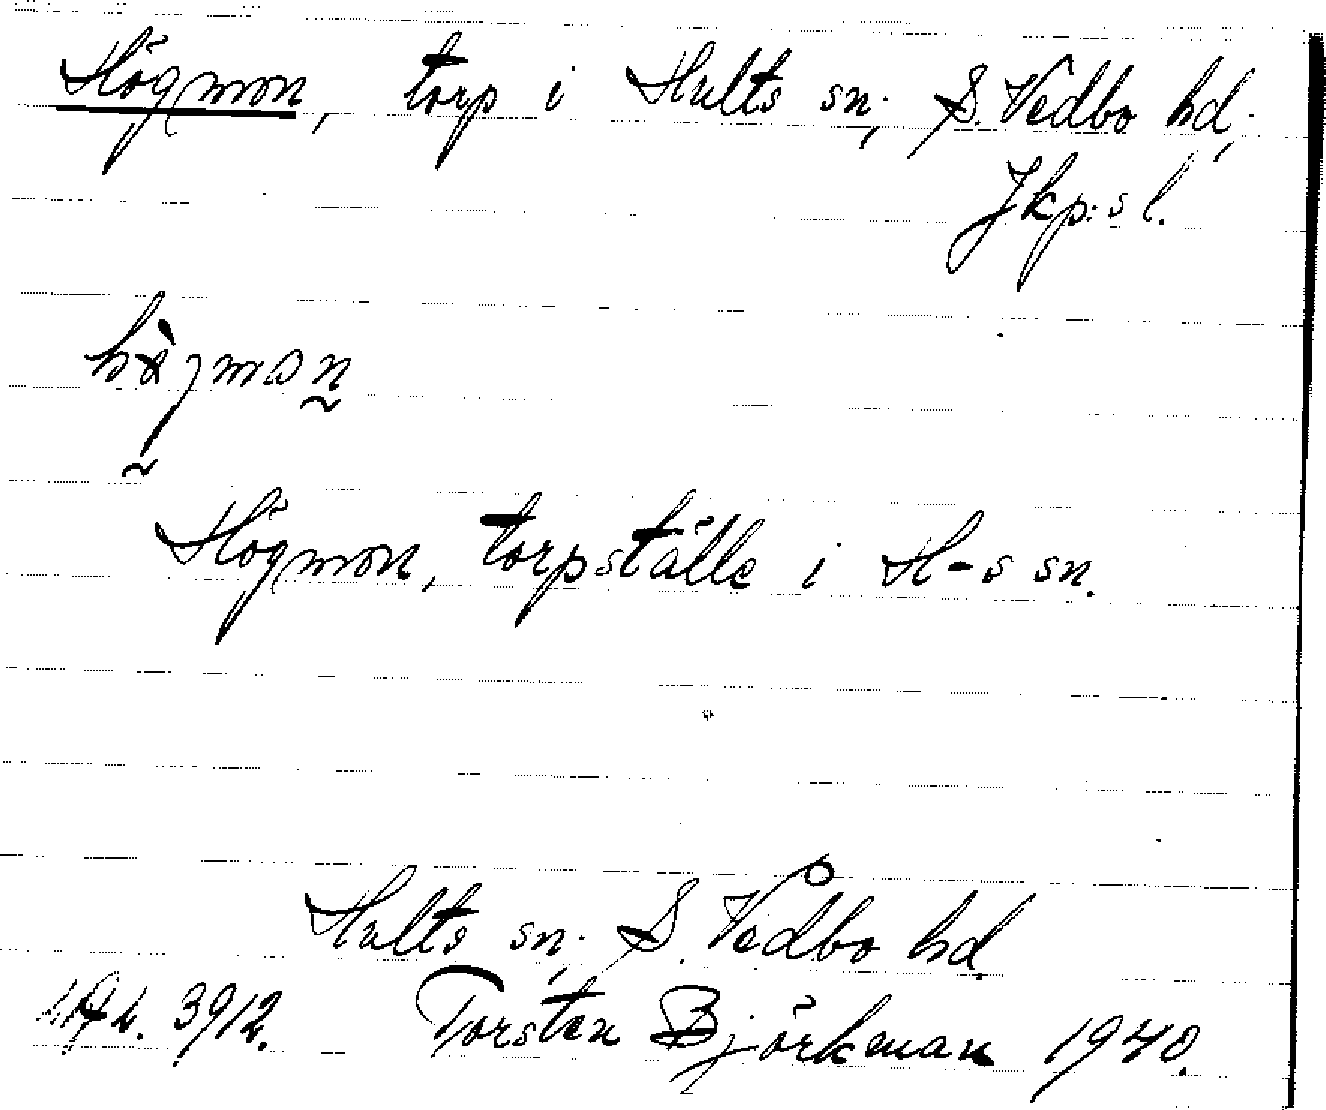 Högmon, torp i Hults sn, S. Vedbo hd,
Jkp:s l.
Högmon, torpställe i H-s sn.
Hults sn. S. Vedbo hd.
3912. Torsten Björkman 1940.